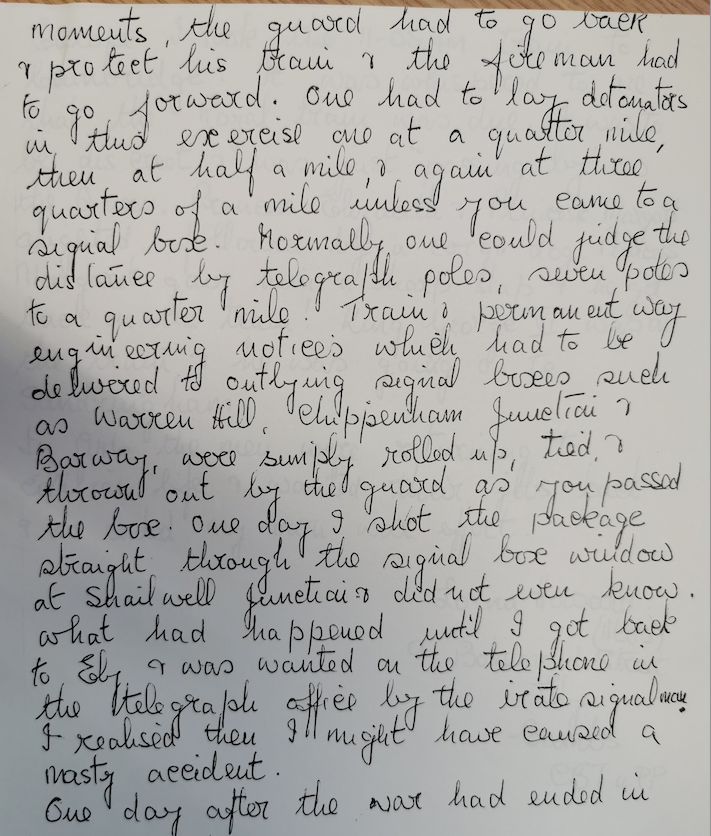 moments, the guard had to go back
& protect his train & the fireman had
to go forward. One had to lay detonators
in this exercise one at a quarter mile,
then at half a mile, & again at three
quarters of a mile unless you came to a
signal box. Normally one could judge the
distance by telegraph poles, seven poles
to a quarter mile. Train & permanent way
engineering notices which had to be
delivered to outlying signal boxes such
as Warren Hill, Chippenham Junction &
Barway, were simply rolled up, tied, &
thrown out by the guard as you passed
the box. One day I shot the package
straight through the signal box window
at Snailwell Junction & did not even know.
what had happened until I got back
to Ely & was wanted on the telephone in
the telegraph office by the irate signalman.
I realised then I might have caused a
nasty accident.
One day after the war had ended in